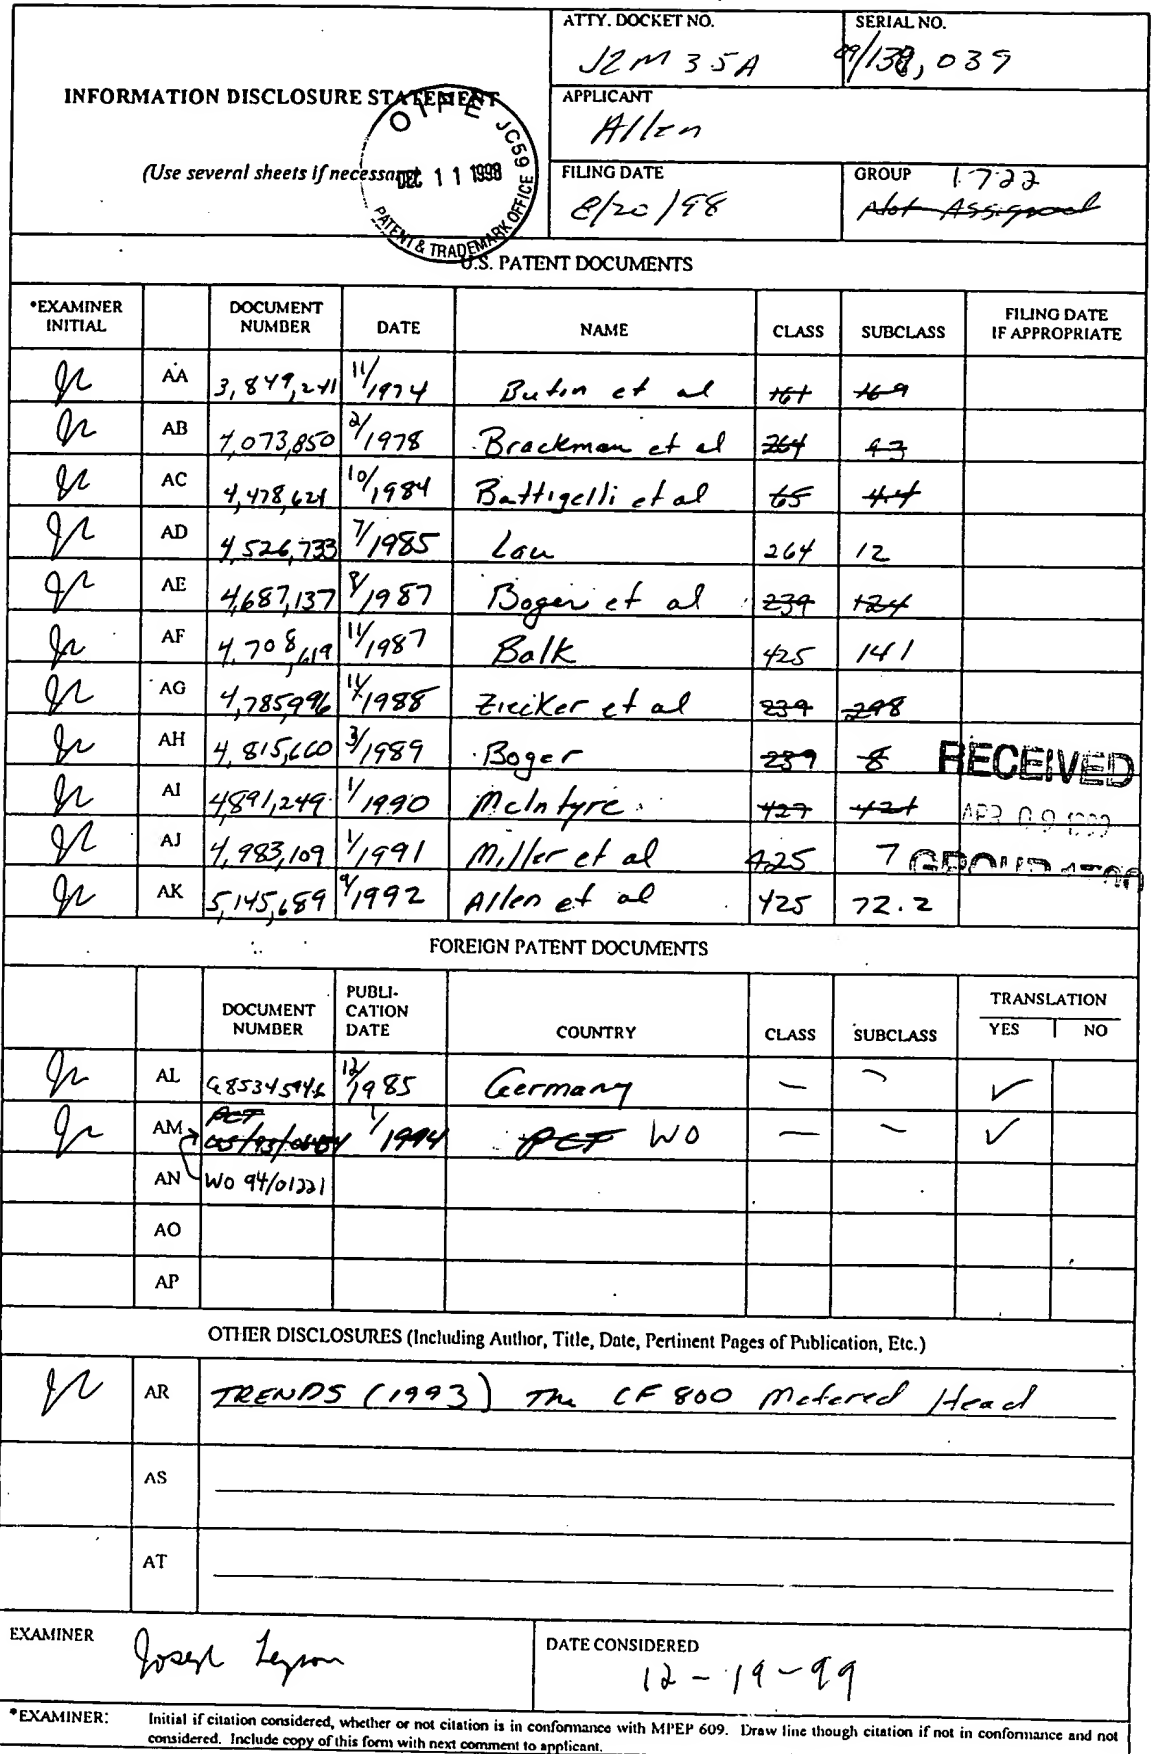 ATTY. DOCKET NO.
J2M 35A
SERIAL NO.
09/138,039
INFORMATION DISCLOSURE STATEMENT
(Use several sheets if necessary)
OIPE JC59
DEC 11 1998
PATENT & TRADEMARK OFFICE
APPLICANT
Allen
FILING DATE
8/20/98
GROUP 1722
Not Assigned
U.S. PATENT DOCUMENTS
*EXAMINER INITIAL DOCUMENT NUMBER DATE NAME CLASS SUBCLASS FILING DATE IF APPROPRIATE
AA 3,849,241 11/1974 Butin et al 161 169
AB 4,073,850 2/1978 Brackman et al 264 93
AC 4,478,624 10/1984 Battigelli et al 65 4.4
AD 4,526,733 7/1985 Lau 264 12
AE 4,687,137 8/1987 Boger et al 239 124
AF 4,708,619 11/1987 Balk 425 141
AG 4,785,996 11/1988 Ziecker et al 239 298
AH 4,815,660 3/1989 Boger 239 8
AI 4,891,249 1/1990 McIntyre 427 421
AJ 4,983,109 1/1991 Miller et al 425 7
AK 5,145,689 9/1992 Allen et al 425 72.2
RECEIVED
APR 09 1999
GROUP 1700
FOREIGN PATENT DOCUMENTS
DOCUMENT NUMBER PUBLI-CATION DATE COUNTRY CLASS SUBCLASS TRANSLATION YES NO
AL G8534594.6 12/1985 Germany — — ✓
AM PCT 1/1994 PCT WO — — ✓
AN WO 94/01221
AO
AP
OTHER DISCLOSURES (Including Author, Title, Date, Pertinent Pages of Publication, Etc.)
AR TRENDS (1993) The CF 800 Metered Head
AS
AT
EXAMINER
Joseph Leyson
DATE CONSIDERED
12-19-99
*EXAMINER: Initial if citation considered, whether or not citation is in conformance with MPEP 609. Draw line though citation if not in conformance and not
considered. Include copy of this form with next comment to applicant.